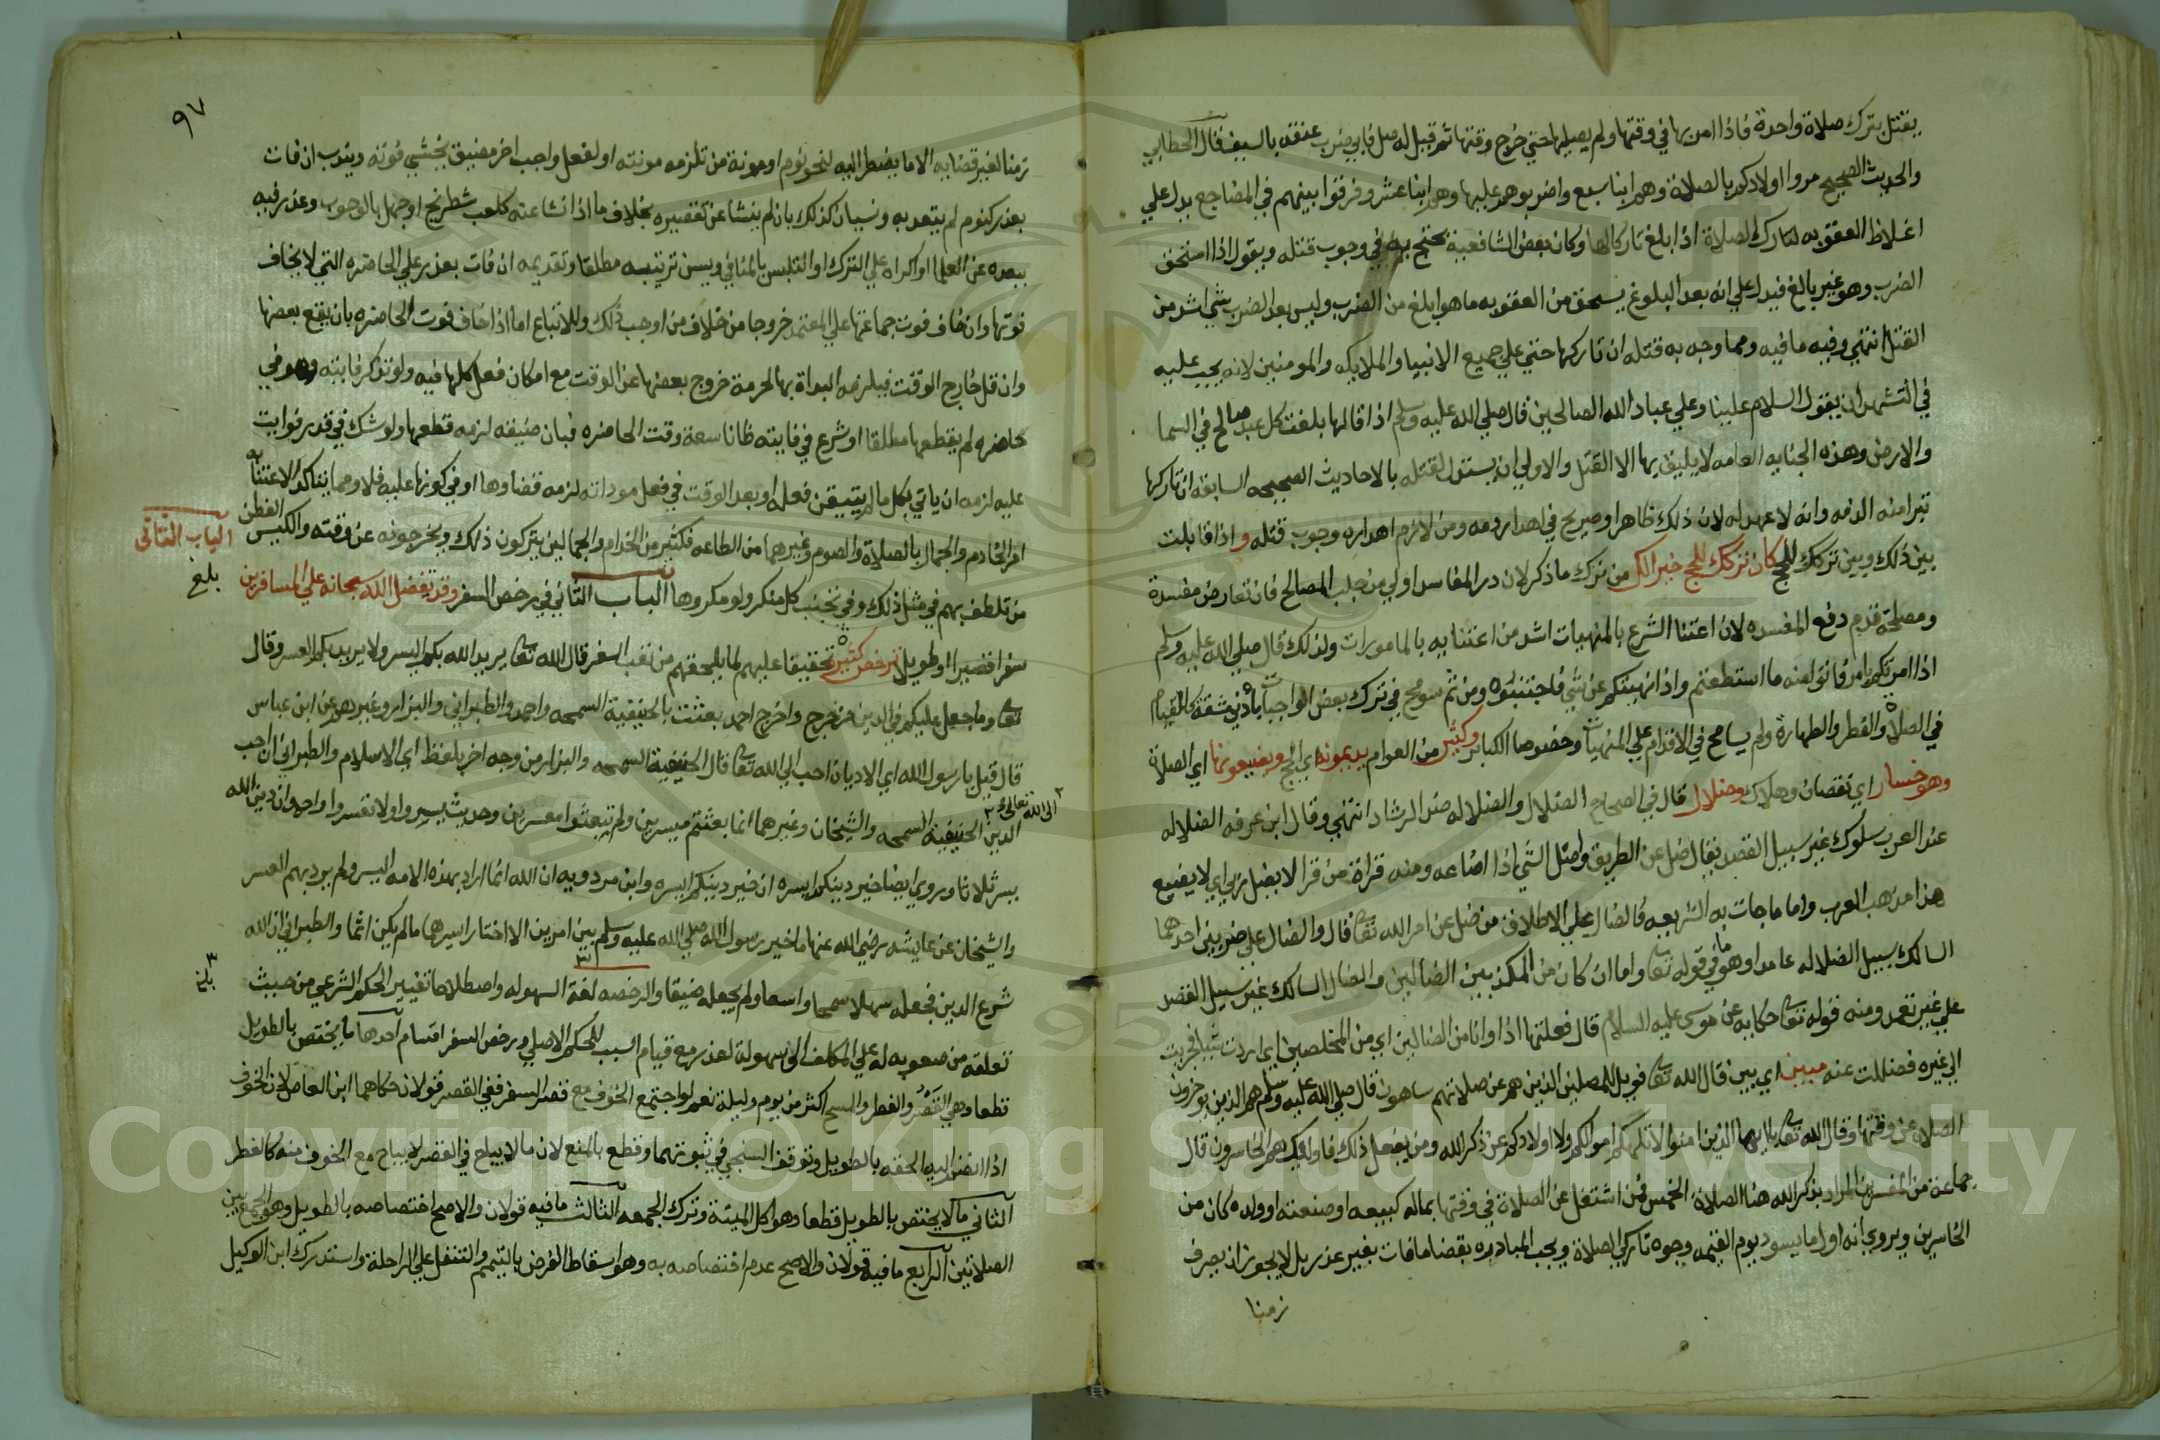 يقتل بترك صلاة واحدة فاذا امر بها في وقتها ولم يصلها حتي خرج وقتها ثم قيل له صل فابي ضرب عنقه بالسيف قال الخطابي
والحديث الصحيح مروا اولادكم بالصلاة وهم ابنا سبع واضربوهم عليها وهم ابنا عشر وفرقوا بينهم في المضاجع يدل علي
اغلاظ العقوبه لتارك الصلاة اذا بلغ تاركا لها وكان بعض الشافعية يحتج به في وجوب قتله ويقول اذا استحق
الضرب وهو غير بالغ فيدل علي انه بعد البلوغ يستحق من العقوبه ما هو ابلغ من الضرب وليس بعد الضرب شي اشد من
القتل انتهي وفيه ما فيه ومما وجه به قتله ان تاركها جني علي جميع الانبيا والملايكه والمومنين لانه يجب عليه
في التشهد ان يقول السلام علينا وعلي عباد الله الصالحين قال صلي الله عليه وسلم اذا قالها بلغت كل عبد صالح في السما
والارض وهذه الجنايه العامه لا يليق بها الا القتل والاولي ان يستدل لقتله بالاحاديث الصحيحه السابقه ان تاركها
تبرا منه الذمه وانه لا عهد له لان ذلك ظاهر او صريح في اهدار دمه ومن لازم اهداره وجوب قتله واذا قابلت
بين ذلك وبين تركك للحج كان تركك للحج خير الك من ترك ما ذكر لان درا المفاسد اولي من جلب المصالح فان تعارض مفسدة
ومصلحة قدم دفع المفسده لان اعتنا الشرع بالمنهيات اشد من اعتنا به بالمامورات ولذلك قال صلي الله عليه وسلم
اذا امرتكم بامر فاتوا منه ما استطعتم واذا نهيتكم عن شي فاجتنبوه ومن ثم سومح في ترك بعض الواجبات بادني مشقة كالقيام
في الصلاة والفطر والطهارة ولم يسامح في الاقدام علي المنهيات وخصوصا الكباير وكثير من العوام يدعونه اي الحج ويضيعونها اي الصلاة
وهو خسار اي نقصان وهلاك وضلال قال في الصحاح الضلال والضلاله ضد الرشاد انتهي وقال ابن عرفه الضلاله
عند العرب سلوك غير سبيل القصد يقال ضل عن الطريق واضل الشي اذا اضاعه ومنه قراة من قرا لا يضل ربي اي لا يضيع
هذا مذهب العرب واما ما جات به الشريعه فالضال علي الاطلاق من ضل عن امر الله تعا قال والضال علي ضربين احدهما
السالك سبيل الضلاله عامدا وهو ما في قوله تعا واما ان كان من المكذبين الضالين والضال السالك غير سبيل القصد
علي غير تعمد ومنه قوله تعا حكايه عن موسي عليه السلام قال فعلتها اذا وانا من الضالين اي من المخلصين اي اردت شيا فجريت
الي غيره فضللت عنه مبين اي بين قال الله تعا فويل للمصلين الذين هم عن صلاتهم ساهون قال صلي الله عليه وسلم هم الذين يوخرون
الصلاة عن وقتها وقال الله تعا يا ايها الذين امنوا لا تلهكم اموالكم ولا اولادكم عن ذكر الله ومن يفعل ذلك فاولئك هم الخاسرون قال
جماعة من المفسرين المراد بذكر الله هنا الصلاة الخمس فمن اشتغل عن الصلاة في وقتها بماله كبيعه او صنعته او ولده كان من
الخاسرين ويروي انه اول ما يسود يوم القيمه وجوه تاركي الصلاة ويجب المبادره بقضا ما فات بغير عذر بل لا يجوز ان يصرف
زمنا
٩٧
زمنا لغير قضايه الا ما يضطر اليه لنحو نوم او مونة من تلزمه مونته او لفعل واجب اخر مضيق يخشي فوته ويندب ان فات
بعذر كنوم لم يتعد به ونسيان كذلك بان لم ينشا عن تقصيره بخلاف ما اذا نشا عنه كلعب شطرنج او جهل بالوجوب وعذر فيه
ببعده عن العلما او اكراه علي الترك او التلبس بالمنافي ويسن ترتيبه مطلقا وتقديمه ان فات بعذر علي الحاضره التي لا يخاف
فوتها وان خاف فوت جماعتها علي المعتمد خروجا من خلاف من اوجب ذلك وللاتباع اما اذا خاف فوت الحاضره بان يقع بعضها
وان قل خارج الوقت فيلزمه البداة بها لحرمة خروج بعضها عن الوقت مع امكان فعل كلها فيه ولو تذكر فايته وهو في
حاضره لم يقطعها مطلقا او شرع في فايته ظانا سعة وقت الحاضره فبان ضيقه لزمه قطعها ولو شك في قدر فوايت
عليه لزمه ان ياتي بكل ما لم يتيقن فعله او بعد الوقت في فعل موداته لزمه قضاوها او في كونها عليه فلا ومما يتاكد الاعتنا به
امر الخادم والجمال بالصلاة والصوم وغيرهما من الطاعه فكثير من الخدام والجمالين يتركون ذلك ويخرجونه عن وقته والكيس الفطن
من تلطف بهم في مثل ذلك وفي تجنب كل منكر ولو مكروها الباب الثاني في رخص السفر وقد تفضل الله سبحانه علي المسافرين
الباب الثاني
بلغ
سفرا قصيرا او طويلا برخص كثيرة تخفيفا عليهم لما يلحقهم من تعب السفر قال الله تعا يريد الله بكم اليسر ولا يريد بكم العسر وقال
تعا وما جعل عليكم في الدين من حرج واخرج احمد بعثت بالحنيفية السمحه واحمد والطبراني والبزار وغيرهم عن ابن عباس
قال قيل يا رسول الله اي الاديان احب الي الله تعا قال الحنيفية السمحه والبزار من وجه اخر بلفظ اي الاسلام والطبراني ان احب
الدين الي الله تعالي الحنيفية السمحه والشيخان وغيرهما انما بعثتم ميسرين ولم تبعثوا معسرين وحديث يسروا ولا تعسروا واحمد ان دين الله
يسر ثلاثا وروي ايضا خير دينكم ايسره ان خير دينكم ايسره وابن مردويه ان الله انما اراد بهذه الامه اليسر ولم يرد بهم العسر
والشيخان عن عايشه رضي الله عنها ما خير رسول الله صلي الله عليه وسلم بين امرين الا اختار ايسرهما ما لم يكن اثما والطبراني ان الله
شرع الدين فجعله سهلا سمحا واسعا ولم يجعله ضيقا والرخصه لغة السهوله واصطلاحا تغيير الحكم الشرعي من حيث
تعلقه من صعوبه له علي المكلف الي سهولة لعذر مع قيام السبب للحكم الاصلي ورخص السفر اقسام احدها ما يختص بالطويل
قطعا وهي القصر والفطر والمسح اكثر من يوم وليلة نعم لو اجتمع الخوف مع قصر السفر ففي القصر قولان حكاهما ابن القاص لان الخوف
اذا انضم اليه الحقه بالطويل وتوقف السنجي في ثبوتهما وقطع بالمنع لان ما لا يباح في القصر لا يباح مع الخوف منه كالفطر
الثاني ما لا يختص بالطويل قطعا وهو اكل الميتة وترك الجمعه الثالث ما فيه قولان والاصح اختصاصه بالطويل وهو الجمع بين
الصلاتين الرابع ما فيه قولان والاصح عدم اختصاصه به وهو اسقاط الفرض بالتيمم والتنفل علي الراحلة واستدرك ابن الوكيل
Copyright © King Saud University